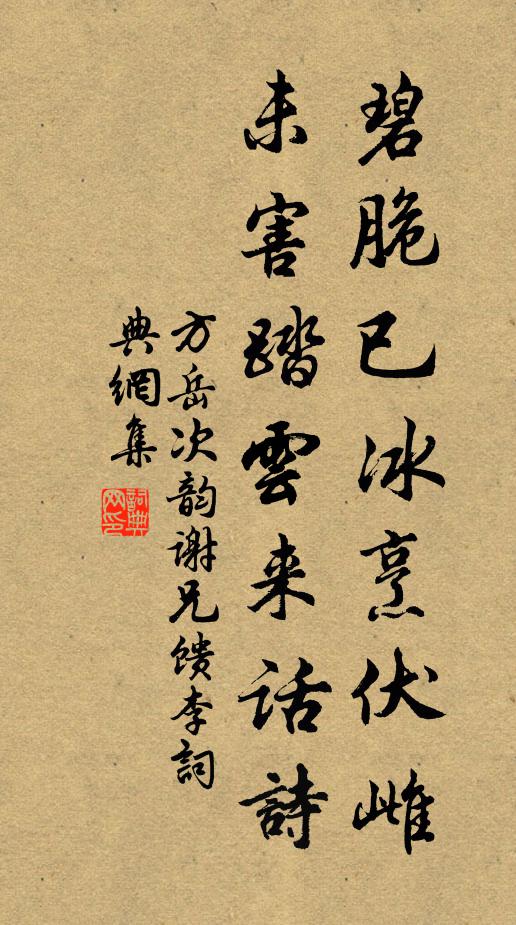 碧脆已冰烹伏雌
未害踏雲来话詩
方岳次韵谢兄馈李詞
典網集
詞典网印